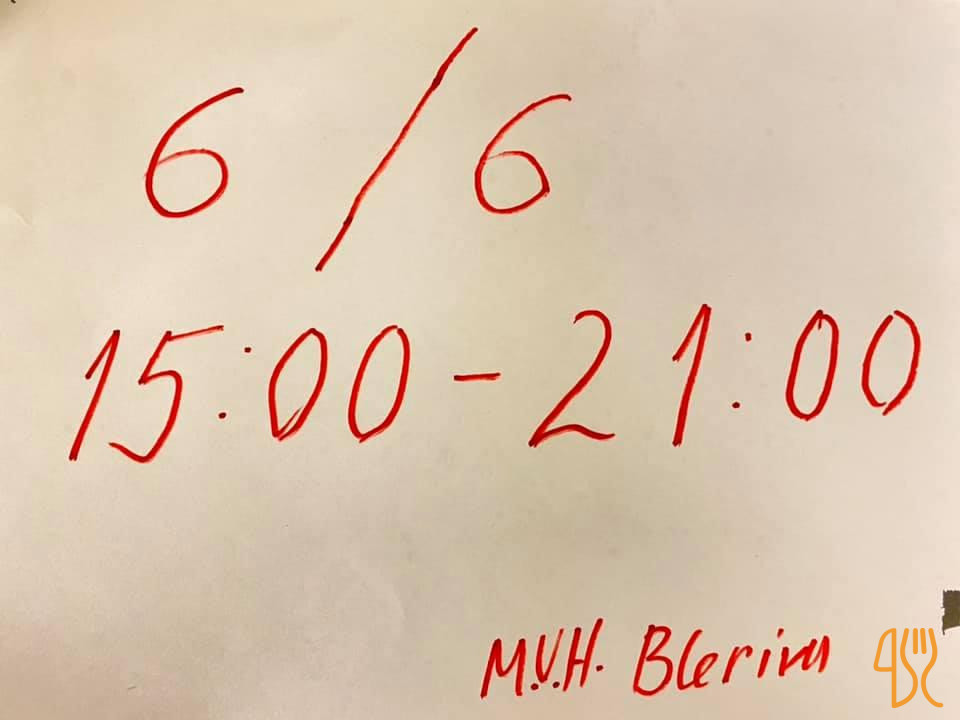 6/6
15:00-21:00
M.V.H. Blerim